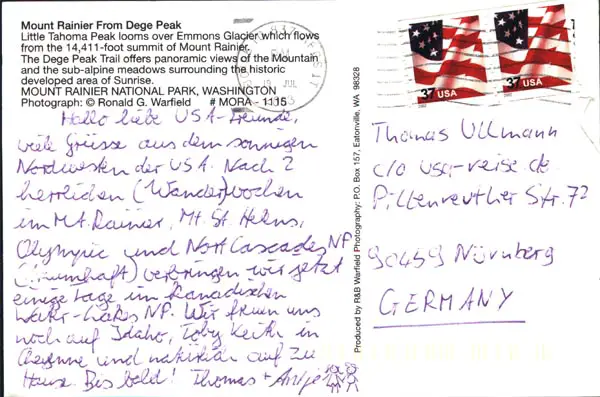 Mount Rainier From Dege Peak
Little Tahoma Peak looms over Emmons Glacier which flows
from the 14,411-foot summit of Mount Rainier.
The Dege Peak Trail offers panoramic views of the Mountain
and the sub-alpine meadows surrounding the historic
developed area of Sunrise.
MOUNT RAINIER NATIONAL PARK, WASHINGTON
Photograph: © Ronald G. Warfield # MORA - 1115
Hallo liebe USA-Freunde,
viele Grüsse aus dem sonnigen
Nordwesten der USA. Nach 2
herrlichen (Wander)wochen
im Mt. Rainier, Mt. St. Helens,
Olympic und North Cascades NP
(traumhaft) verbringen wir jetzt
einige Tage im kanadischen
NP. Wir freuen uns
noch auf Idaho, Toby Keith in
Cheyenne und natürlich auf zu
Hause. Bis bald! Thomas + Antje
Produced by R&B Warfield Photography: P.O. Box 157, Eatonville, WA 98328
JUL
37 USA
37 USA
Thomas Ullmann
c/o usa-reise.de
Pillenreuther Str. 72
90459 Nürnberg
GERMANY